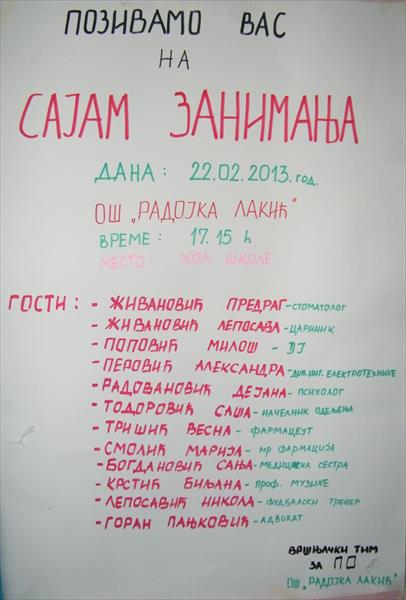 ПОЗИВАМО ВАС
НА
САЈАМ ЗАНИМАЊА
ДАНА: 22.02.2013. год.
ОШ „РАДОЈКА ЛАКИЋ"
ВРЕМЕ: 17.15 h
МЕСТО: ХОЛ ШКОЛЕ
ГОСТИ: - ЖИВАНОВИЋ ПРЕДРАГ - СТОМАТОЛОГ
- ЖИВАНОВИЋ ЛЕПОСАВА - ЦАРИНИК
- ПОПОВИЋ МИЛОШ - DJ
- ПЕРОВИЋ АЛЕКСАНДРА - ДИП. ИНГ. ЕЛЕКТРОТЕХНИКЕ
- РАДОВАНОВИЋ ДЕЈАНА - ПСИХОЛОГ
- ТОДОРОВИЋ САША - НАЧЕЛНИК ОДЕЉЕЊА
- ТРИШИЋ ВЕСНА - ФАРМАЦЕУТ
- СМОЛИЋ МАРИЈА - МР ФАРМАЦИЈА
- БОГДАНОВИЋ САЊА - МЕДИЦИНСКА СЕСТРА
- КРСТИЋ БИЉАНА - ПРОФ. МУЗИКЕ
- ЛЕПОСАВИЋ НИКОЛА - ФУДБАЛСКИ ТРЕНЕР
- ГОРАН ПАЊКОВИЋ - АДВОКАТ
ВРШЊАЧКИ ТИМ
ЗА ПО
ОШ „РАДОЈКА ЛАКИЋ"